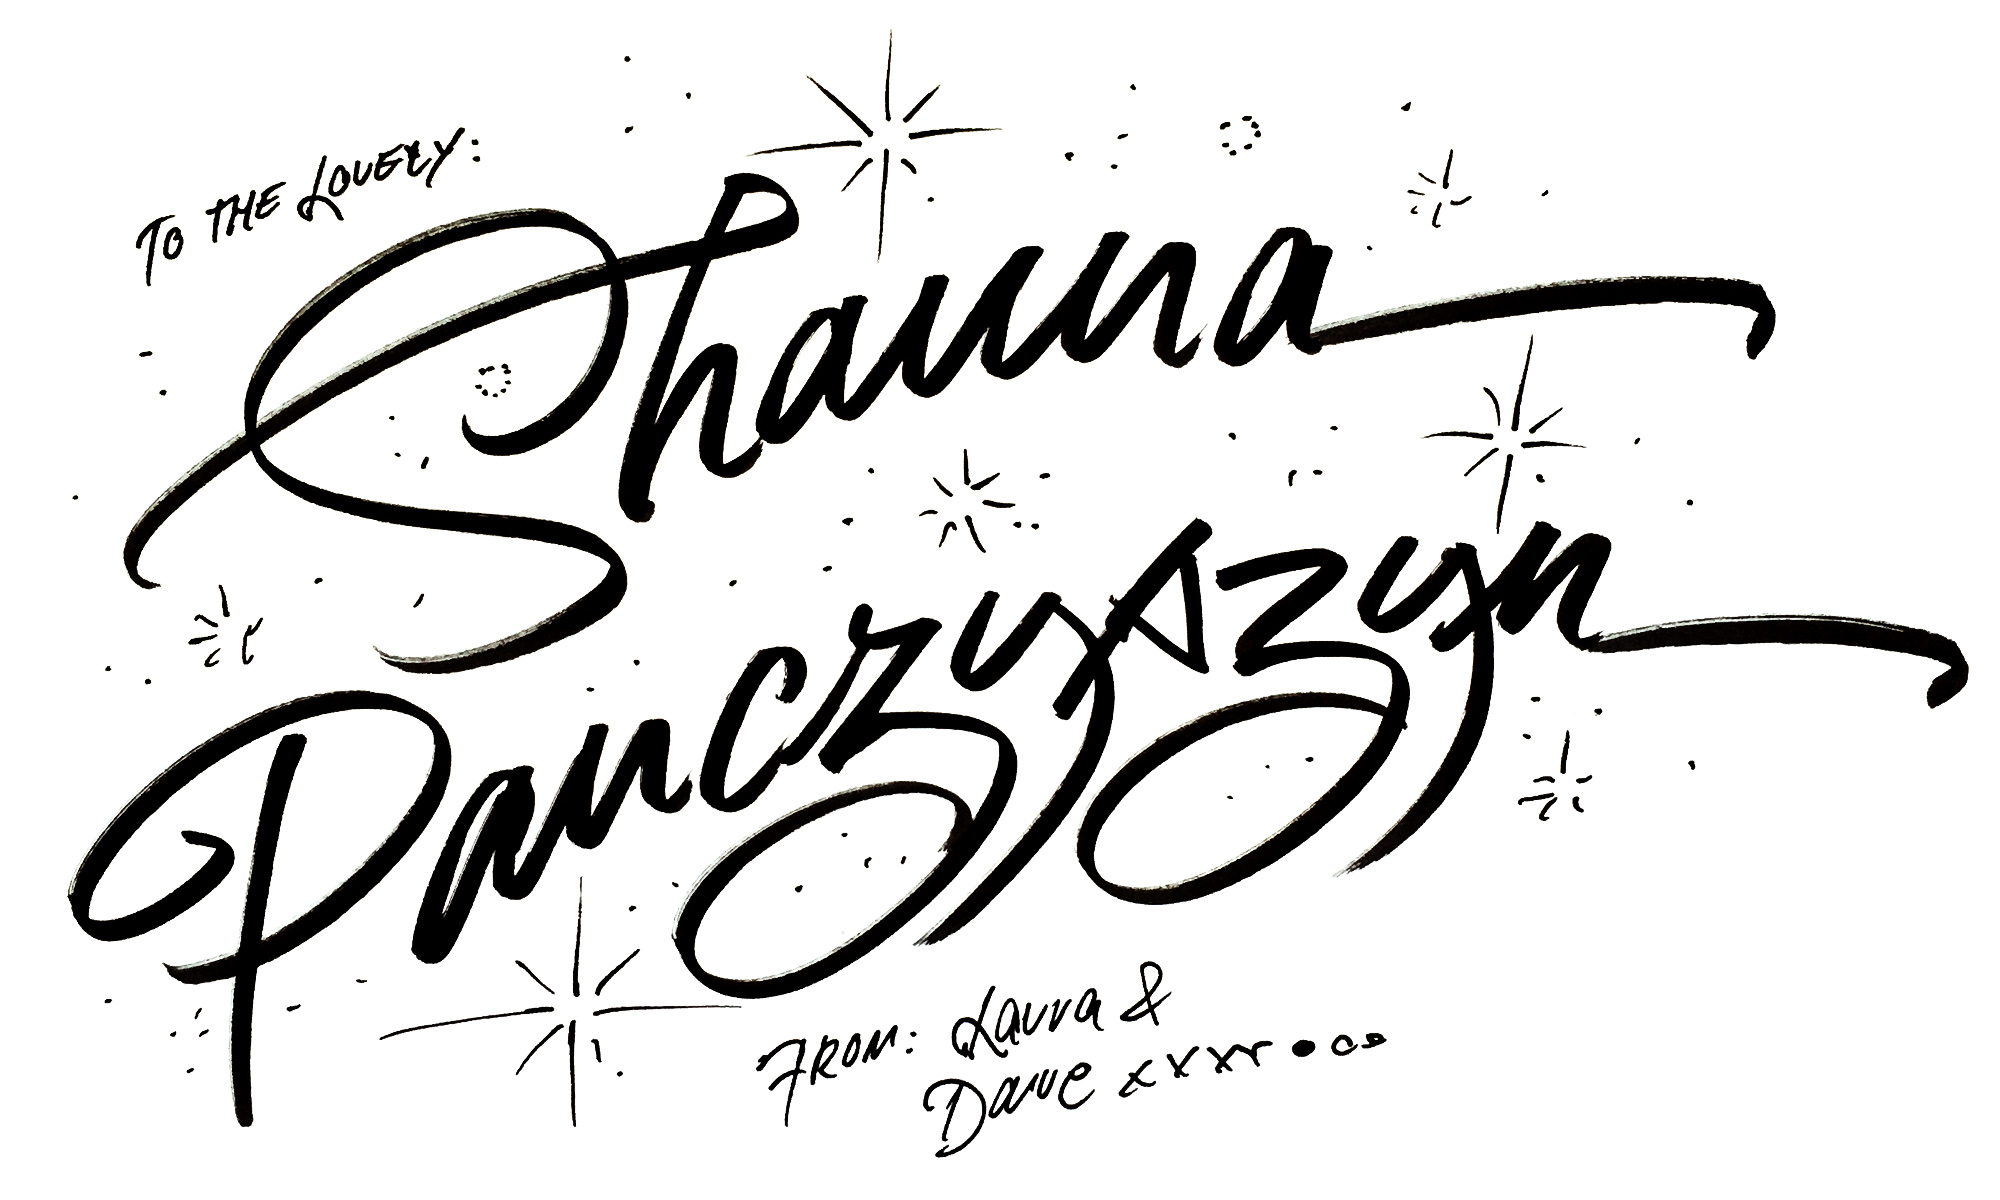 TO THE LOVELY:
Shanna
Panczyszyn
FROM: Laura &
Dave xxxx